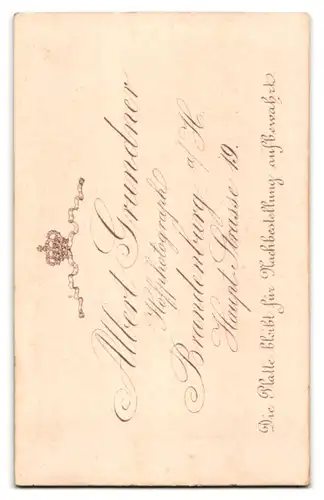 Albert Grundner
Hofphotograph
Brandenburg a/H.
Haupt-Strasse 19.
Die Platte bleibt für Nachbestellung aufbewahrt